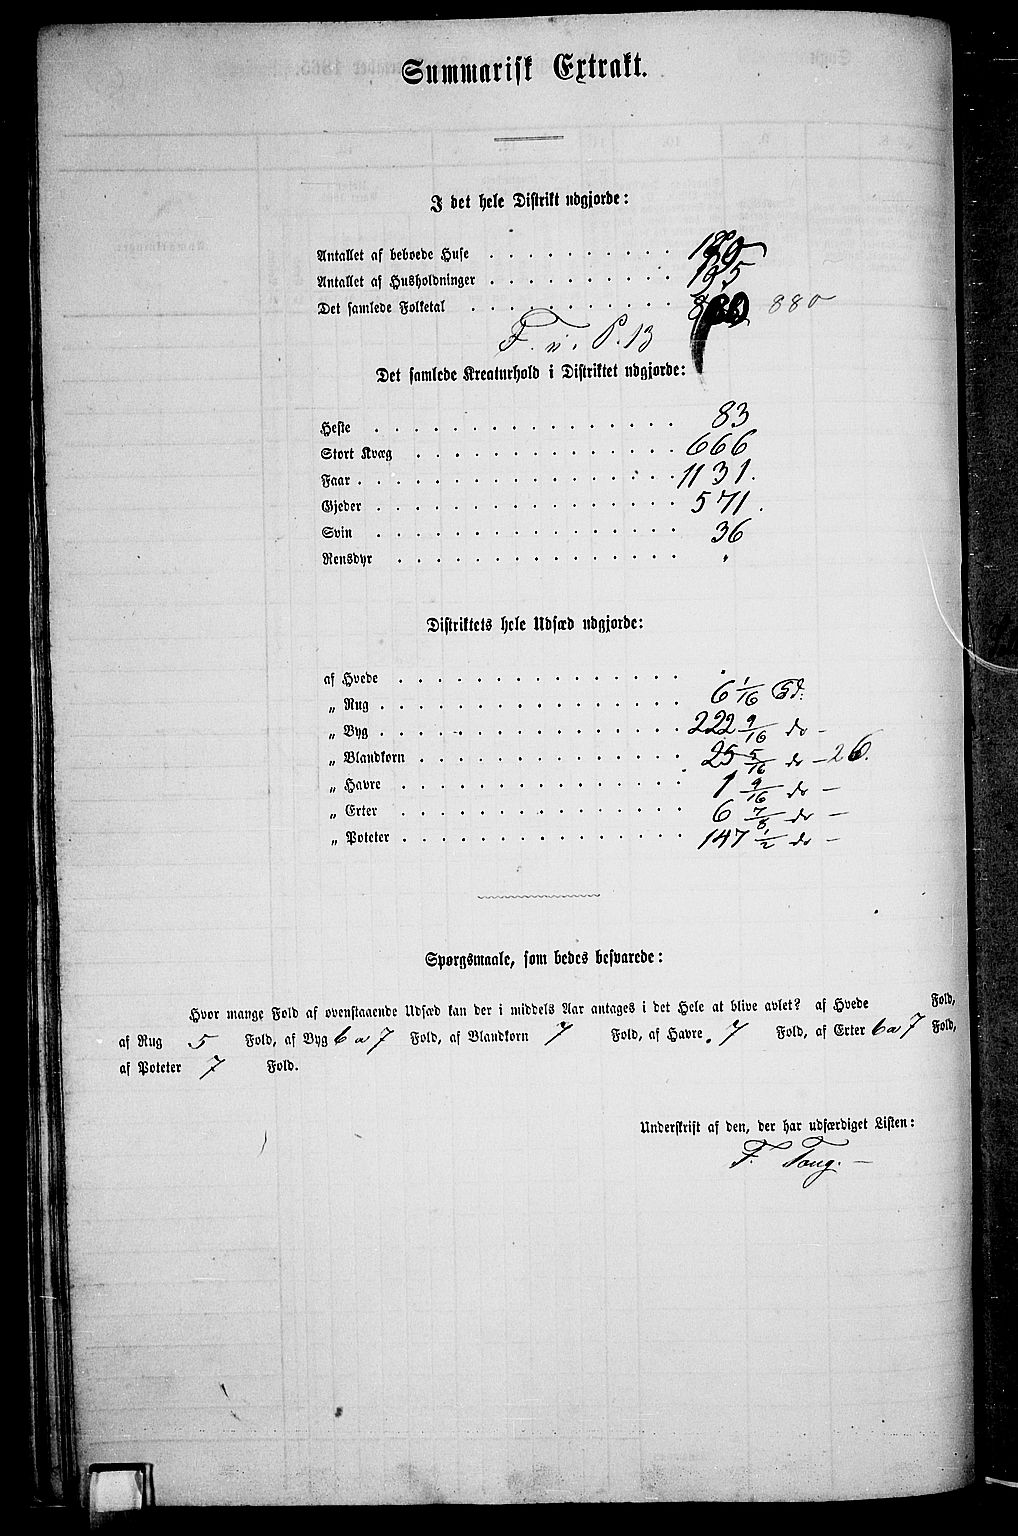 Summarisk Extrakt.
I det hele Distrikt udgjorde:
Antallet af beboede Huse
Antallet af Husholdninger 195
Det samlede Folketal 880
F. n. P. 13
Det samlede Kreaturhold i Distriktet udgjorde:
Heste 83
Stort Kvæg 666
Faar 1131.
Gjeder 571.
Svin 36
Rensdyr "
Distriktets hele Udsæd udgjorde:
af Hvede
„ Rug 6 1/16 Td:
„ Byg 222 9/16 do -
„ Blandkorn 25 5/16 do - 26.
„ Havre 1 9/16 do -
„ Erter 6 7/8 do -
„ Poteter 147 1/2 do -
Spørgsmaale, som bedes besvarede:
Hvor mange Fold af ovenstaaende Udsæd kan der i middels Aar antages i det Hele at blive avlet? af Hvede Fold,
af Rug 5 Fold, af Byg 6 a 7 Fold, af Blandkorn 7 Fold, af Havre 7 Fold, af Erter 6 a 7 Fold,
af Poteter 7 Fold.
Underskrift af den, der har udfærdiget Listen:
F. Tong. -